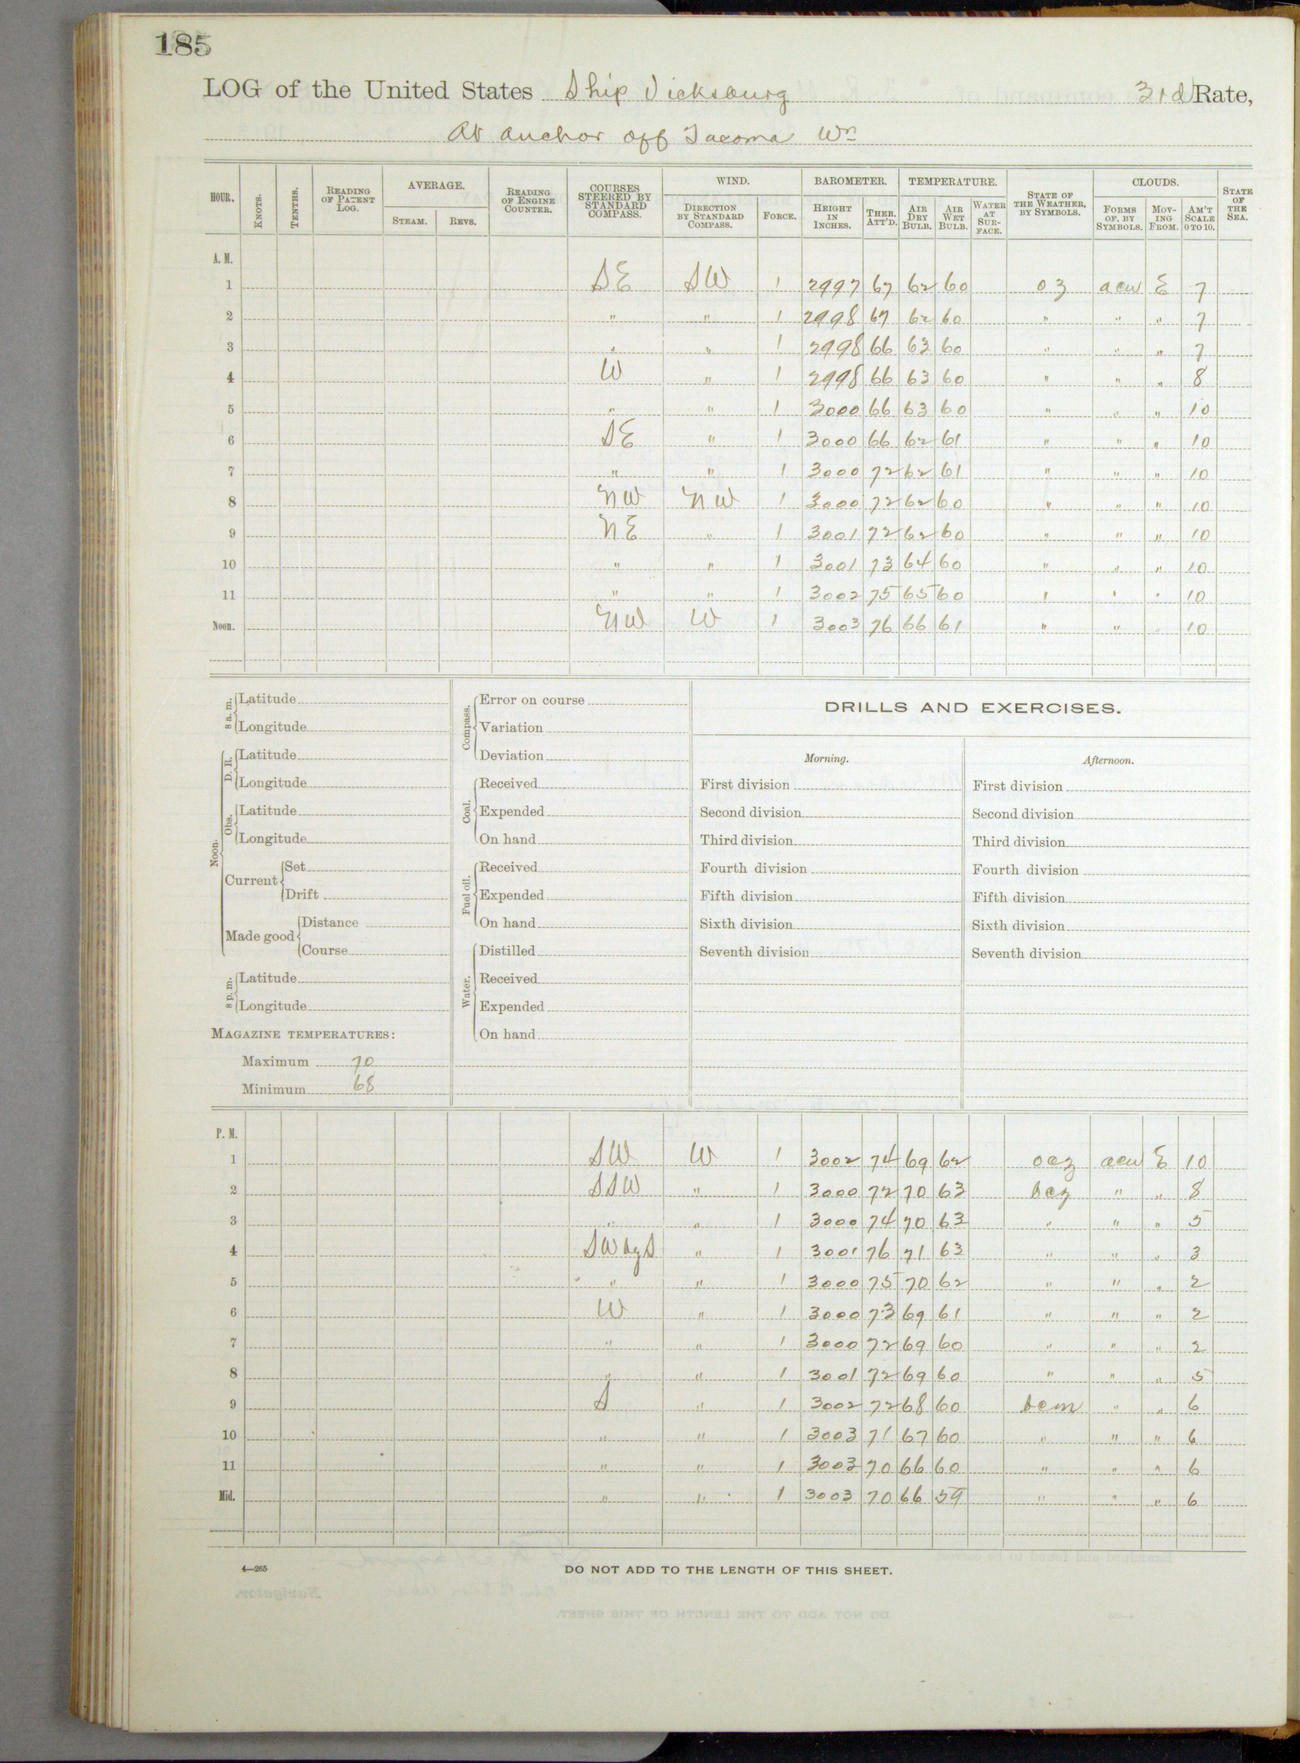 185
LOG of the United States Ship Vicksburg 3rd Rate,
At anchor off Tacoma Wn
HOUR. KNOTS. TENTHS. READING OF PATENT LOG. AVERAGE. STEAM. REVS. READING OF ENGINE COUNTER. COURSES STEERED BY STANDARD COMPASS. WIND. DIRECTION BY STANDARD COMPASS. FORCE. BAROMETER. HEIGHT IN INCHES. THER. ATT'D. TEMPERATURE. AIR DRY BULB. AIR WET BULB. WATER AT SURFACE. STATE OF THE WEATHER, BY SYMBOLS. CLOUDS. FORMS OF, BY SYMBOLS. MOVING FROM. AM'T SCALE 0 TO 10. STATE OF THE SEA.
A. M.
1 SE SW 1 2997 67 62 60 oz acu E 7
2 " " 1 2998 67 62 60 " " " 7
3 " " 1 2998 66 63 60 " " " 7
4 W " 1 2998 66 63 60 " " " 8
5 " " 1 3000 66 63 60 " " " 10
6 SE " 1 3000 66 62 61 " " " 10
7 " " 1 3000 72 62 61 " " " 10
8 NW NW 1 3000 72 62 60 " " " 10
9 NE " 1 3001 72 62 60 " " " 10
10 " " 1 3001 73 64 60 " " " 10
11 " " 1 3002 75 65 60 " " " 10
Noon. NW W 1 3003 76 66 61 " " " 10
8 a. m. Latitude
Longitude
Noon. D. R. Latitude
Longitude
Obs. Latitude
Longitude
Current Set
Drift
Made good Distance
Course
8 p. m. Latitude
Longitude
MAGAZINE TEMPERATURES:
Maximum 70
Minimum 68
Compass. Error on course
Variation
Deviation
Coal. Received
Expended
On hand
Fuel oil. Received
Expended
On hand
Water. Distilled
Received
Expended
On hand
DRILLS AND EXERCISES.
Morning. Afternoon.
First division First division
Second division Second division
Third division Third division
Fourth division Fourth division
Fifth division Fifth division
Sixth division Sixth division
Seventh division Seventh division
P. M.
1 SW W 1 3002 74 69 62 ocz acu E 10
2 SSW " 1 3000 72 70 63 bcz " " 8
3 " " 1 3000 74 70 63 " " " 5
4 SWbyS " 1 3001 76 71 63 " " " 3
5 " " 1 3000 75 70 62 " " " 2
6 W " 1 3000 73 69 61 " " " 2
7 " " 1 3000 72 69 60 " " " 2
8 " " 1 3001 72 69 60 " " " 5
9 S " 1 3002 72 68 60 bcm " " 6
10 " " 1 3003 71 67 60 " " " 6
11 " " 1 3003 70 66 60 " " " 6
Mid. " " 1 3003 70 66 59 " " " 6
4—265 DO NOT ADD TO THE LENGTH OF THIS SHEET.